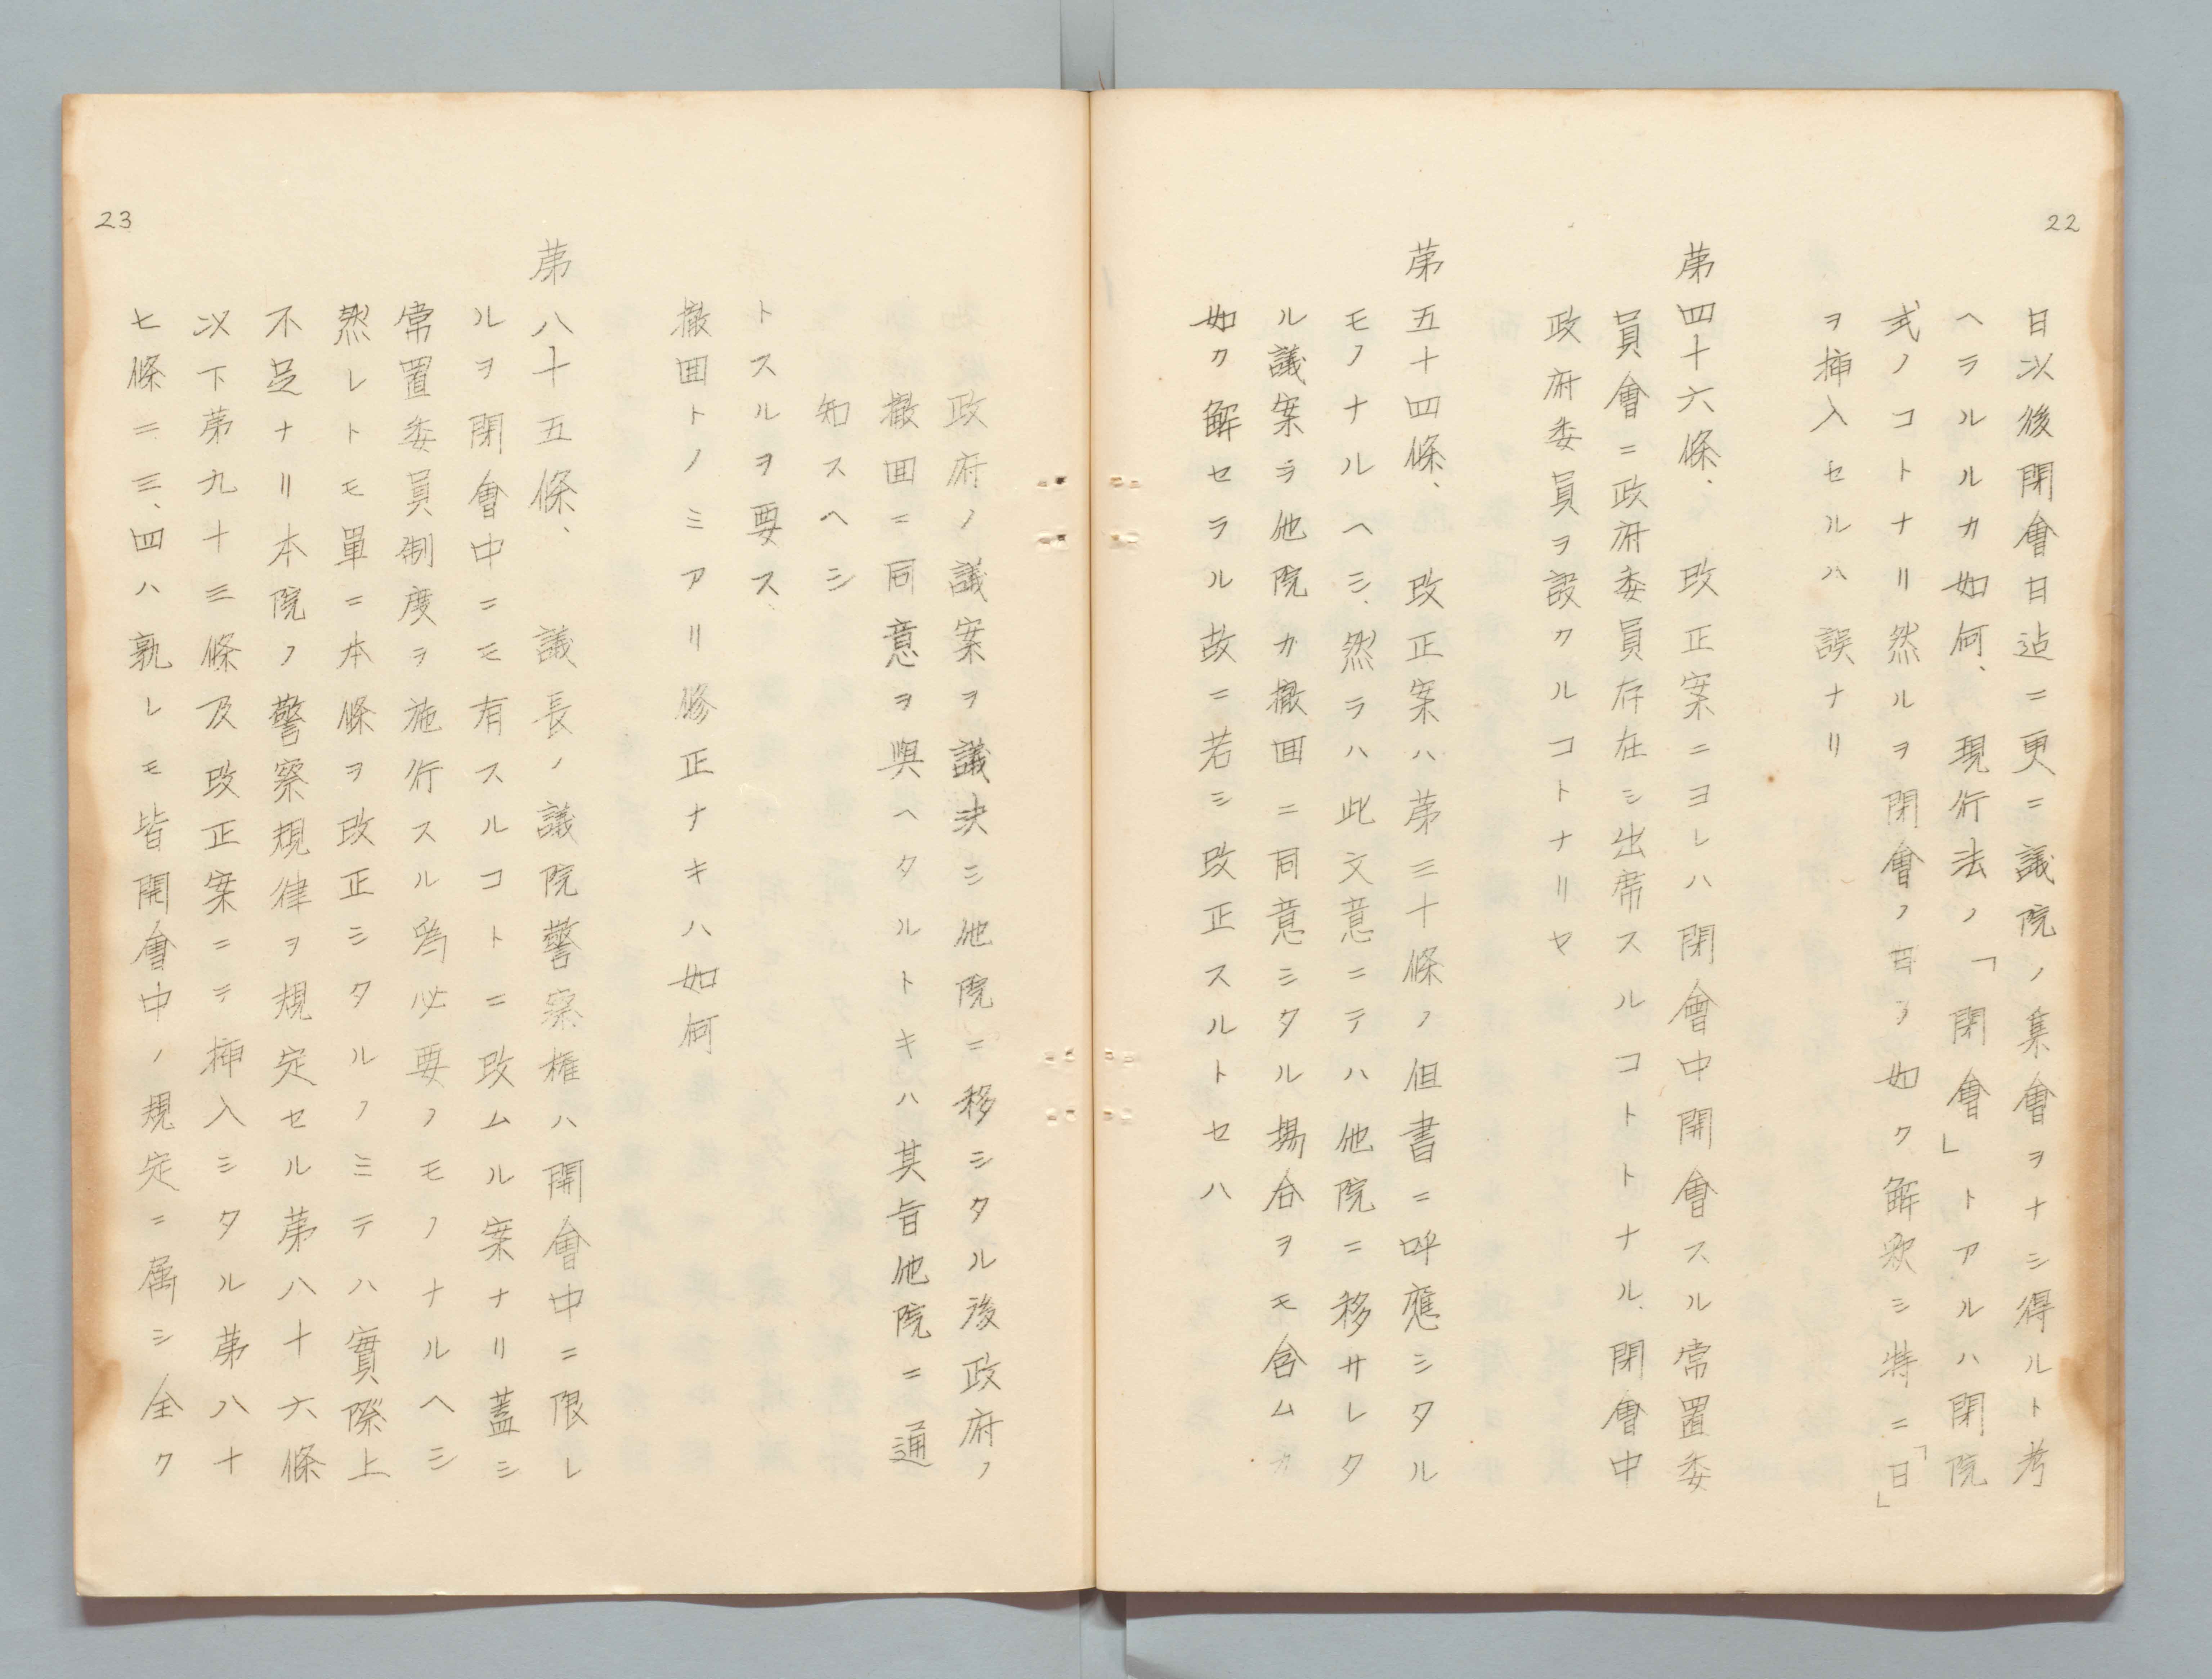 22
日以後閉會日迠ニ更ニ議院ノ集會ヲナシ得ルト考
ヘラルルカ如何、現行法ノ「閉會」トアルハ閉院
式ノコトナリ然ルヲ閉會ノ日ノ如ク解釈シ特ニ「日」
ヲ挿入セルハ誤ナリ
第四十六條、改正案ニヨレハ閉會中開會スル常置委
員會ニ政府委員存在シ出席スルコトトナル、閉會中
政府委員ヲ設クルコトナリヤ
第五十四條、改正案ハ第三十條ノ但書ニ呼應シタル
モノナルヘシ、然ラハ此文意ニテハ他院ニ移サレタ
ル議案ヲ他院カ撤囬ニ同意シタル場合ヲモ含ムカ
如ク解セラル故ニ若シ改正スルトセハ
23
政府ノ議案ヲ議決シ他院ニ移シタル後政府ノ
撤囬ニ同意ヲ與ヘタルトキハ其旨他院ニ通
知スヘシ
トスルヲ要ス、
撤囬トノミアリ修正ナキハ如何
第八十五條、議長ノ議院警察権ハ開會中ニ限レ
ルヲ閉會中ニモ有スルコトニ改ムル案ナリ蓋シ
常置委員制度ヲ施行スル為必要ノモノナルヘシ
然レトモ單ニ本條ヲ改正シタルノミテハ實際上
不足ナリ本院ノ警察規律ヲ規定セル第八十六條
以下第九十三條及改正案ニテ挿入シタル第八十
七條ニ三、四ハ孰レモ皆開會中ノ規定ニ属シ全ク